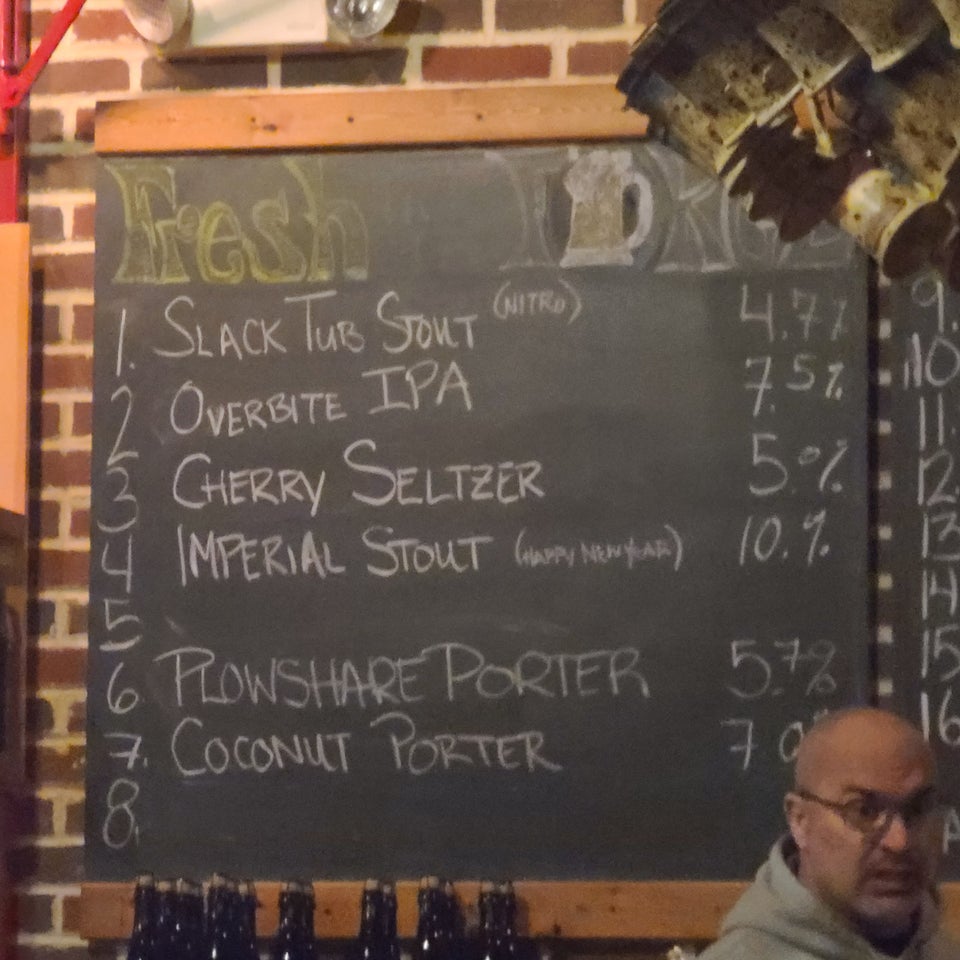 Fresh
1. SLACK TUB STOUT (NITRO) 4.7%
2 OVERBITE IPA 7.5%
3 CHERRY SELTZER 5.0%
4 IMPERIAL STOUT (HAPPY NEW YEAR) 10.%
5
6 PLOWSHARE PORTER 5.7%
7. COCONUT PORTER 7.0%
8.
9.
10
11.
12
13
14
15
16